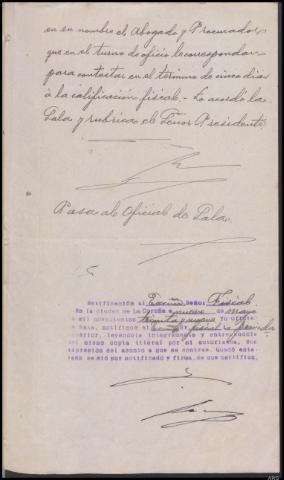 en su nombre el Abogado y Procurador
que en el turno de oficio le correspondan
para contestar en el término de cinco dias
á la calificación fiscal.- Lo acordó la
Sala y rubrica el Señor Presidente
Pasa al Oficial de Sala.
Notificación al Excmo Señor Fiscal.
En la ciudad de La Coruña a nueve de mayo
de mil novecientos treinta y nueve Yo Oficial
de Sala, notifiqué al Excmo Fiscal la providencia
anterior, leyéndola íntegramente y entregándole
del mismo copia literal por mí autorizada, con
expresión del asunto a que se contrae. Quedó ente-
rado se dió por notificado y firma, de que certifico.